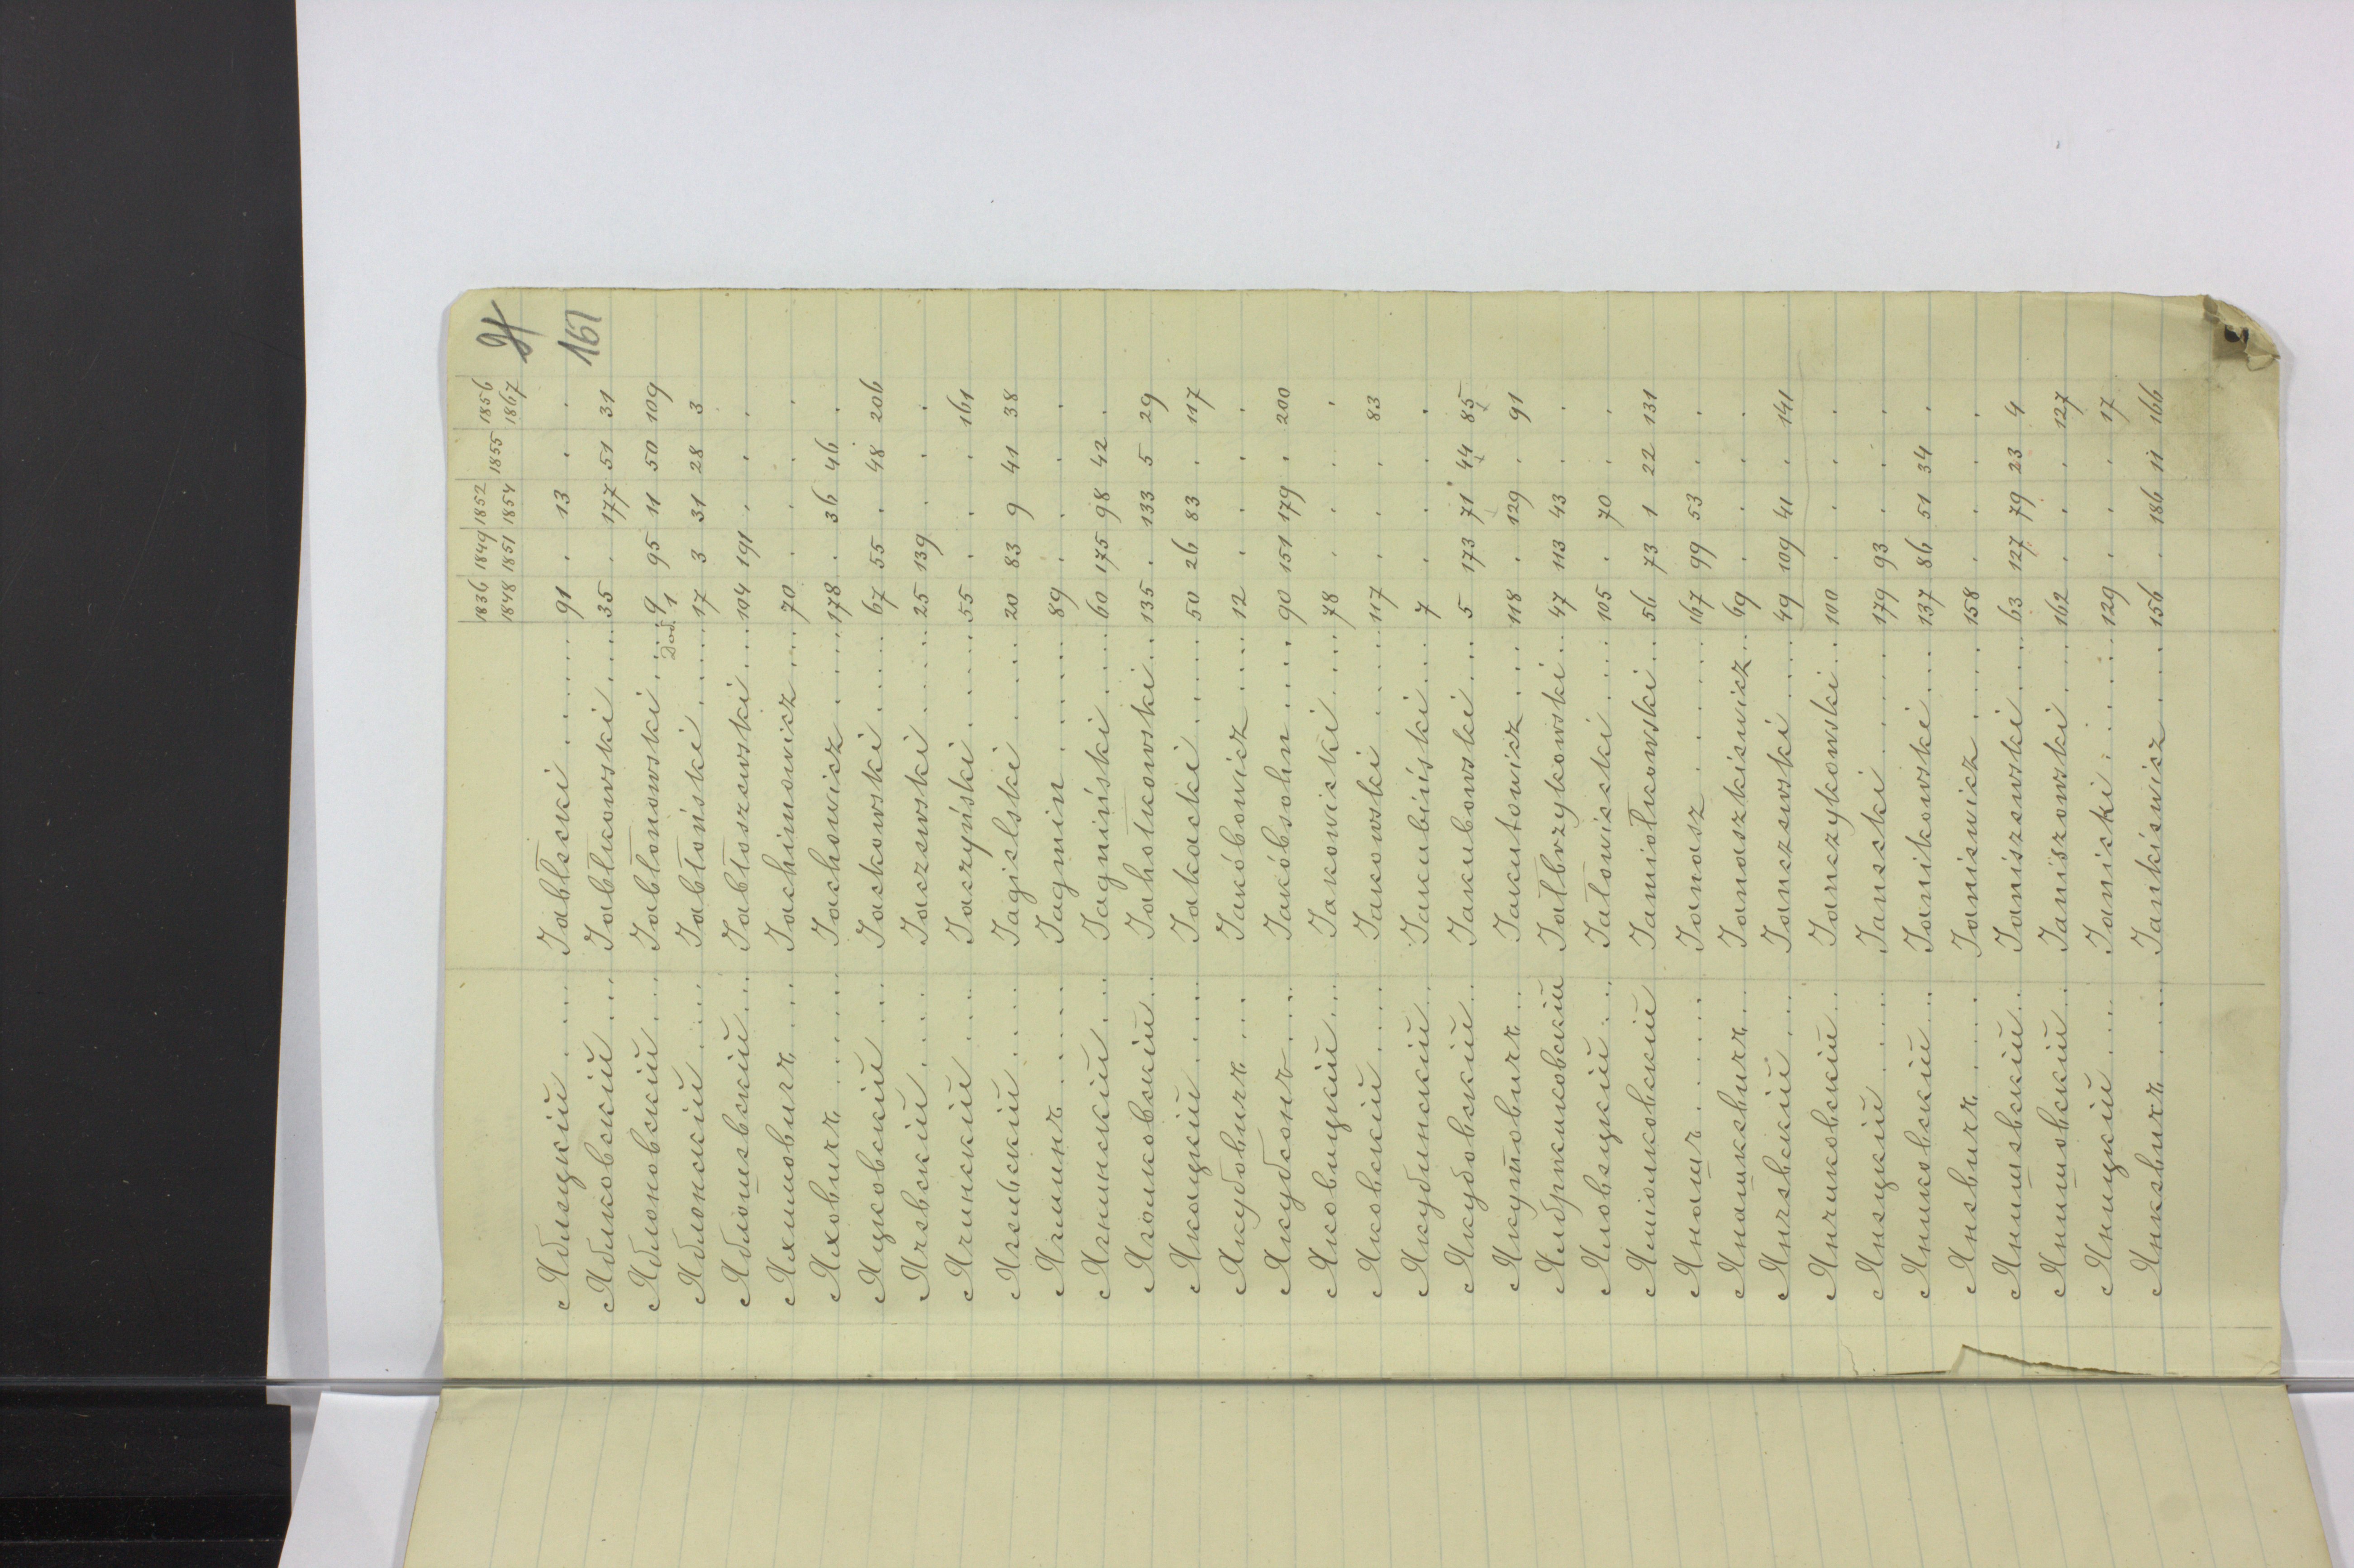 1836 1849 1852 1855 1856
1848 1851 1854 1867
Я
161
Яблецкій ..... Jabłecki ...... 91 . 13 . .
Яблковскій ... Jabłkowski .... 35 . 177 51 31
Яблоновскій ... Jabłonowski .... 9 95 11 50 109
Dod. 1
Яблонскій .... Jabłoński ..... 17 3 31 28 3
Яблошевскій ... Jabłoszewski ... 104 191 . . .
Яхимовичъ ... Jachimowicz .... 70 . . . .
Яховичъ ..... Jachowicz ..... 178 . 36 46 .
Яцковскій ... Jackowski ..... 67 55 . 48 206
Ячевскій ..... Jaczewski ..... 25 139 . . .
Ячинскій .... Jaczyński ..... 55 . . . 161
Ягельскій .... Jagielski ..... 20 83 9 41 38
Ягминъ ..... Jagmin ...... 89 . . . .
Ягнинскій ... Jagniński .... 60 175 98 42 .
Яголковскій .. Jahołkowski ... 135 . 133 5 29
Якацкій ..... Jakacki ...... 50 26 83 . 117
Якубовичъ ... Jakóbowicz .... 12 . . . .
Якубсонъ .... Jakóbsohn .... 90 151 179 . 200
Яковицкій ... Jakowicki .... 78 . . . .
Яковскій .... Jakowski ..... 117 . . . 83
Якубинскій .. Jakubiński .... 7 . . . .
Якубовскій .. Jakubowski .... 5 173 71 44 85
Якутовичъ .. Jakutowicz .... 118 . 129 . 91
Ялбржиковскій Jałbrzykowski .. 47 113 43 . .
Яловецкій ... Jałowiecki .... 105 . 70 . .
Ямiолковскій Jamiołkowski .. 56 73 1 22 131
Янашъ ..... Janasz ...... 167 99 53 . .
Янашкевичъ .. Janaszkiewicz .. 69 . . . .
Янчевскій ... Janczewski .... 49 109 41 . 141
Янчиковскій .. Janczykowski .. 100 . . . .
Янецкій .... Janecki ...... 179 93 . . .
Яниковскій .. Janikowski .... 137 86 51 34 .
Яневичъ .... Janiewicz .... 158 . . . .
Янишевскій .. Janiszewski .... 63 127 79 23 4
Янишовскій .. Janiszowski .... 162 . . . 127
Яницкій .... Janicki ...... 129 . . . 17
Янкевичъ .... Jankiewicz ... 156 . 186 11 166